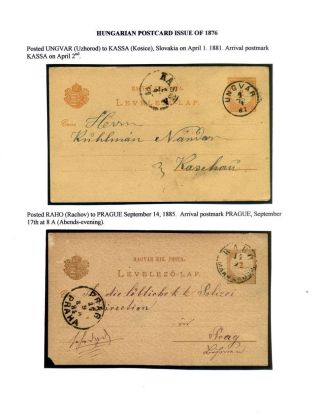 HUNGARIAN POSTCARD ISSUE OF 1876
Posted UNGVAR (Uzhorod) to KASSA (Kosice), Slovakia on April 1. 1881. Arrival postmark
KASSA on April 2nd.
LEVELEZŐ-LAP.
UNGVÁR
Herrn
Kuhlman Nándor
Kaschau
Posted RAHO (Rachov) to PRAGUE September 14, 1885. Arrival postmark PRAGUE, September
17th at 8 A (Abends-evening).
MAGYAR KIR. POSTA.
LEVELEZŐ-LAP.
PRAG
PRAHA
die löbliche k. k. Polizei
Direction
in
Prag
Böhmen